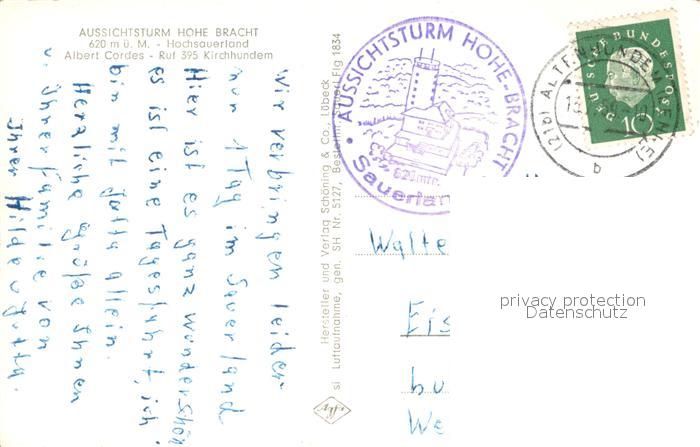 AUSSICHTSTURM HOHE BRACHT
620 m ü. M. - Hochsauerland
Albert Cordes - Ruf 395 Kirchhundem
Wir verbringen leider
nur 1 Tag im Sauerland
Hier ist es ganz wunderschön
es ist eine Tagesfahrt, ich
bin mit Jotty allein.
Herzliche Grüße Ihnen
u. Ihrer Familie von
Ihrer Hilde u. Jotty.
Hersteller und Verlag Schöning & Co., Lübeck
si Luftaufnahme, gen. SH Nr. S127, Bestellnr. Sauerl Flg 1834
AUSSICHTSTURM HOHE-BRACHT
620 mtr.
Sauerlan
DEUTSCHE BUNDESPOST
10
(21b) ALTENHUNDEM
b
Walte
Eis
bu
We
privacy protection
Datenschutz